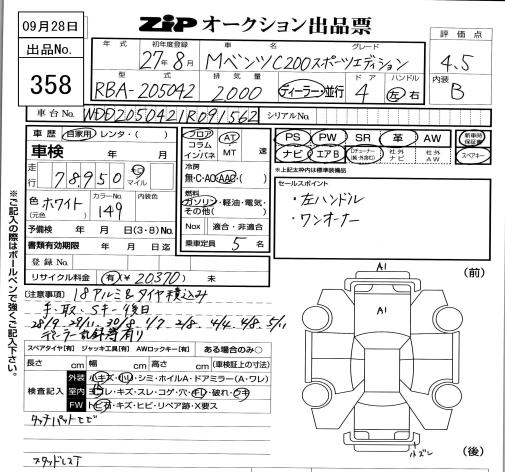 09月28日
ZIP オークション出品票
出品No.
358
年式
初年度登録
車名
グレード
評価点
27年8月
MベンツC200スポーツエディション
4.5
型式
排気量
ドア
ハンドル
内装
RBA-205042
2000
ディーラー・並行
4
左・右
B
車台No.
WDD2050421R091562
シリアルNo.
車歴 自家用・レンタ・( )
フロア
コラム
インパネ
AT
MT
速
PS PW SR 革 AW
新車時保証書
ナビ エアB
社外ナビ
社外AW
スペアキー
※上記太枠内は標準装備品
車検 年 月
冷房
無・C・AC・AAC・( )
走行
78,950
キロ
マイル
燃料
ガソリン・軽油・電気・その他( )
色
(元色)
ホワイト
カラーNo.
149
内装色
Nox 適合・非適合
予備検 年 月 日(3・8)No.
書類有効期限 年 月 日迄
乗車定員 5 名
登録No.
リサイクル料金 (有)(¥20370) 未
セールスポイント
・左ハンドル
・ワンオーナー
※ご記入の際はボールペンで強くご記入下さい。
[注意事項] 18アルミ&タイヤ積込み
手、取、Sキー後日
28/9 29/11 30/8 1/7 2/8 4/4 4/8 5/11
ディーラー記録簿有り
スペアタイヤ[有] ジャッキ工具[有] AWロックキー[有] ある場合のみ○
長さ cm 幅 cm 高さ cm (車検証上の寸法)
検査記入
外装 小キズ・小凹・シミ・ホイルA・ドアミラー(A・ワレ)
室内 ヨゴレ・キズ・スレ・コゲ・穴・キレ・破れ・ウキ
FW トビ石・キズ・ヒビ・リペア跡・X要ス
タッチパットヒビ
スタッドレスT
(前)
A1
A1
(後)